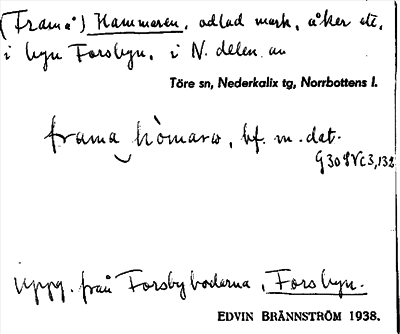 (Framå) Hammaren, odlad mark, åker etc.
i byn Forsbyn, i N. delen av
Töre sn, Nederkalix tg, Norrbottens l.
frama hòmarɷ, bf. m. dat.
G30 8Vc3,132
Uppg. från Forsbybodarna, Forsbyn.
EDVIN BRÄNNSTRÖM 1938.